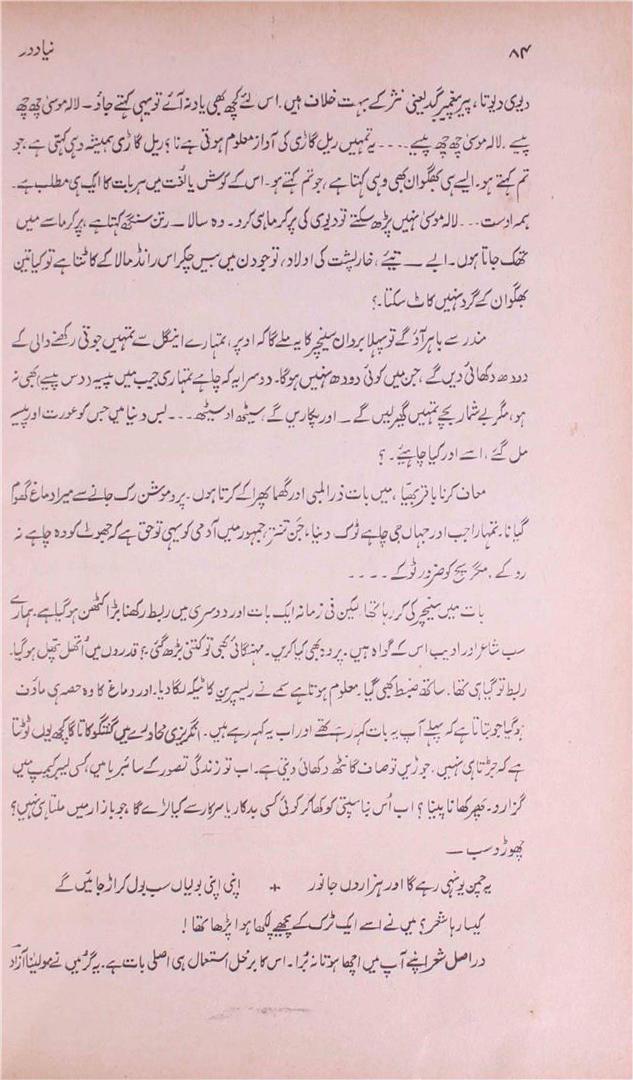 ۸۴
نیادور
دیوی دیوتا، پیر پیغمبر گد یعنی نثر کے بہت خلاف ہیں۔ اس لئے کچھ بھی یاد نہ آئے تو یہی کہتے جاؤ۔ لالہ موسیٰ چھ چھ
پیسے۔ لالہ موسیٰ چھ چھ پیسے۔۔۔۔ یہ تمہیں ریل گاڑی کی آواز معلوم ہوتی ہے نا؟ ریل گاڑی ہمیشہ وہی کہتی ہے، جو
تم کہتے ہو۔ ایسے ہی بھگوان بھی وہی کہتا ہے، جو تم کہتے ہو۔ اس کے کوش یا لغت میں ہر بات کا ایک ہی مطلب ہے۔
ہمہ اوست۔۔۔ لالہ موسیٰ نہیں پڑھ سکتے تو دیوی کی پرکرما ہی کرو۔ وہ سالا — رتن سنگھ کہتا ہے، پرکرما سے میں
تھک جاتا ہوں۔ ابے — تیئے، خارپشت کی اولاد، تو جو دن میں بیس چکر اس رانڈ مالا کے کاٹتا ہے تو کیا تین
بھگوان کے گرد نہیں کاٹ سکتا۔؟
مندر سے باہر آؤ گے تو پہلا بردان سنیچر کا یہ ملے گا کہ اوپر، تمہارے اینگل سے تمہیں جوتی رکھنے والی کے
دودھ دکھائی دیں گے، جن میں کوئی دودھ نہیں ہوگا۔ دوسرا یہ کہ چاہے تمہاری جیب میں پیسہ (دس پیسے) بھی نہ
ہو، مگر بے شمار بچے تمہیں گھیر لیں گے — اور پکاریں گے، سیٹھ او سیٹھ۔۔۔ بس دنیا میں جس کو عورت اور پیسے
مل گئے، اسے اور کیا چاہیئے۔؟
معاف کرنا باقر بھیّا، میں بات ذرا لمبی اور گھما پھرا کے کرتا ہوں۔ پروموشن رک جانے سے میرا دماغ گھوم
گیا نا۔ تمہارا جب اور جہاں جی چاہے ٹوک دینا، جَن تنتر، جمہور میں آدمی کو یہی تو حق ہے کہ جھوٹ کو وہ چاہے نہ
روکے، مگر سچ کو ضرور ٹوکے۔۔۔۔
بات میں سنیچر کی کر رہا تھا، لیکن فی زمانہ ایک بات اور دوسری میں ربط رکھنا بڑا کٹھن ہو گیا ہے۔ ہمارے
سب شاعر اور ادیب اس کے گواہ ہیں۔ پر وہ بھی کیا کریں۔ مہنگائی بھی تو کتنی بڑھ گئی ہے، قدروں میں اُتھل پتھل ہو گیا۔
ربط تو گیا ہی تھا۔ ساتھ ضبط بھی گیا۔ معلوم ہوتا ہے سمے نے ریسپرین کا ٹیکہ لگا دیا۔ اور دماغ کا وہ حصہ ہی ماؤف
ہو گیا جو بتاتا ہے کہ پہلے آپ یہ بات کہہ رہے تھے اور اب یہ کہہ رہے ہیں۔ انگریزی محاورے میں گفتگو کا تاگا کچھ یوں ٹوٹتا
ہے کہ جڑتا ہی نہیں، جوڑیں تو صاف گانٹھ دکھائی دیتی ہے۔ اب تو زندگی تصور کے سائبریا میں، کسی لیبر کیمپ میں
گزارو۔ پھر کھانا پینا؟ اب اُس نیاسپتی کو کھا کر کوئی کسی بدکار یا سرکار سے کیا لڑے گا، جو بازار میں ملتا ہی نہیں؟
چھوڑو سب —
یہ چمن یونہی رہے گا اور ہزاروں جانور + اپنی اپنی بولیاں سب بول کر اڑ جائیں گے
کیسا رہا شعر؟ میں نے اسے ایک ٹرک کے پیچھے لکھا ہوا پڑھا تھا!
دراصل شعر اپنے آپ میں اچھا ہوتا نہ بُرا۔ اس کا برمحل استعمال ہی اصلی بات ہے۔ یہ گُر میں نے مولینا آزاد